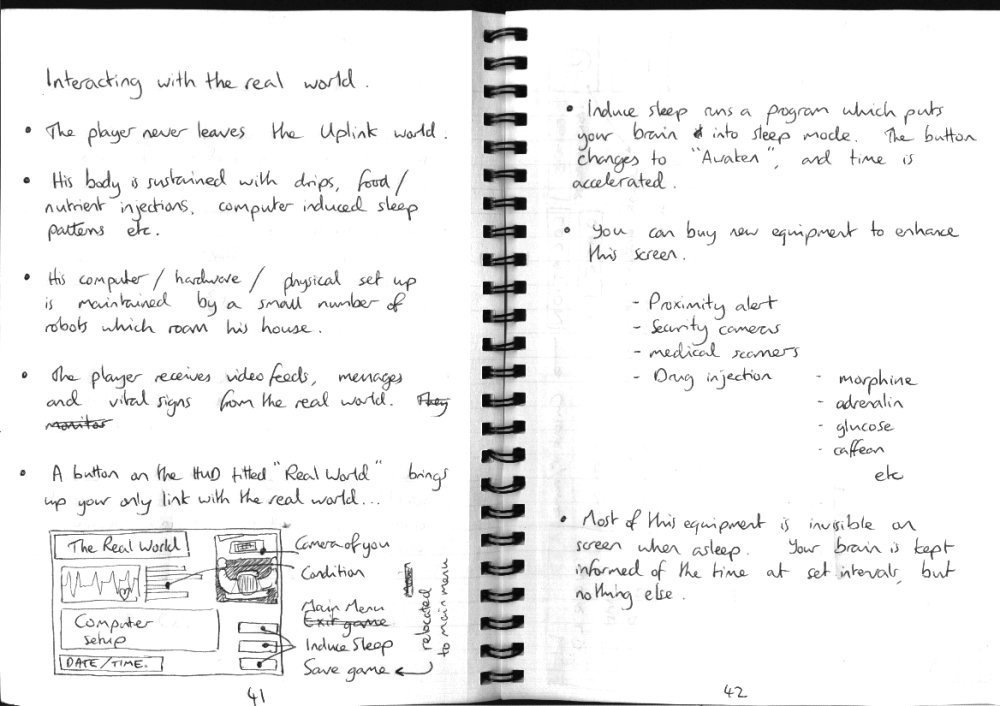 Interacting with the real world.
• The player never leaves the Uplink world.
• His body is sustained with drips, food /
nutrient injections, computer induced sleep
patterns etc.
• His computer / hardware / physical set up
is maintained by a small number of
robots which roam his house.
• The player receives video feeds, messages
and vital signs from the real world. They
monitor
• A button on the HUD titled "Real World" brings
up your only link with the real world...
The Real World
Computer
setup
DATE/TIME.
Camera of you
Condition
Main Menu
Exit game
Induce Sleep
Save game
relocated
to main menu
41
• Induce sleep runs a program which puts
your brain into sleep mode. The button
changes to "Awaken", and time is
accelerated.
• You can buy new equipment to enhance
this screen.
- Proximity alert
- Security cameras
- medical scanners
- Drug injection - morphine
- adrenalin
- glucose
- caffean
etc
• Most of this equipment is invisible on
screen when asleep. Your brain is kept
informed of the time at set intervals, but
nothing else.
42